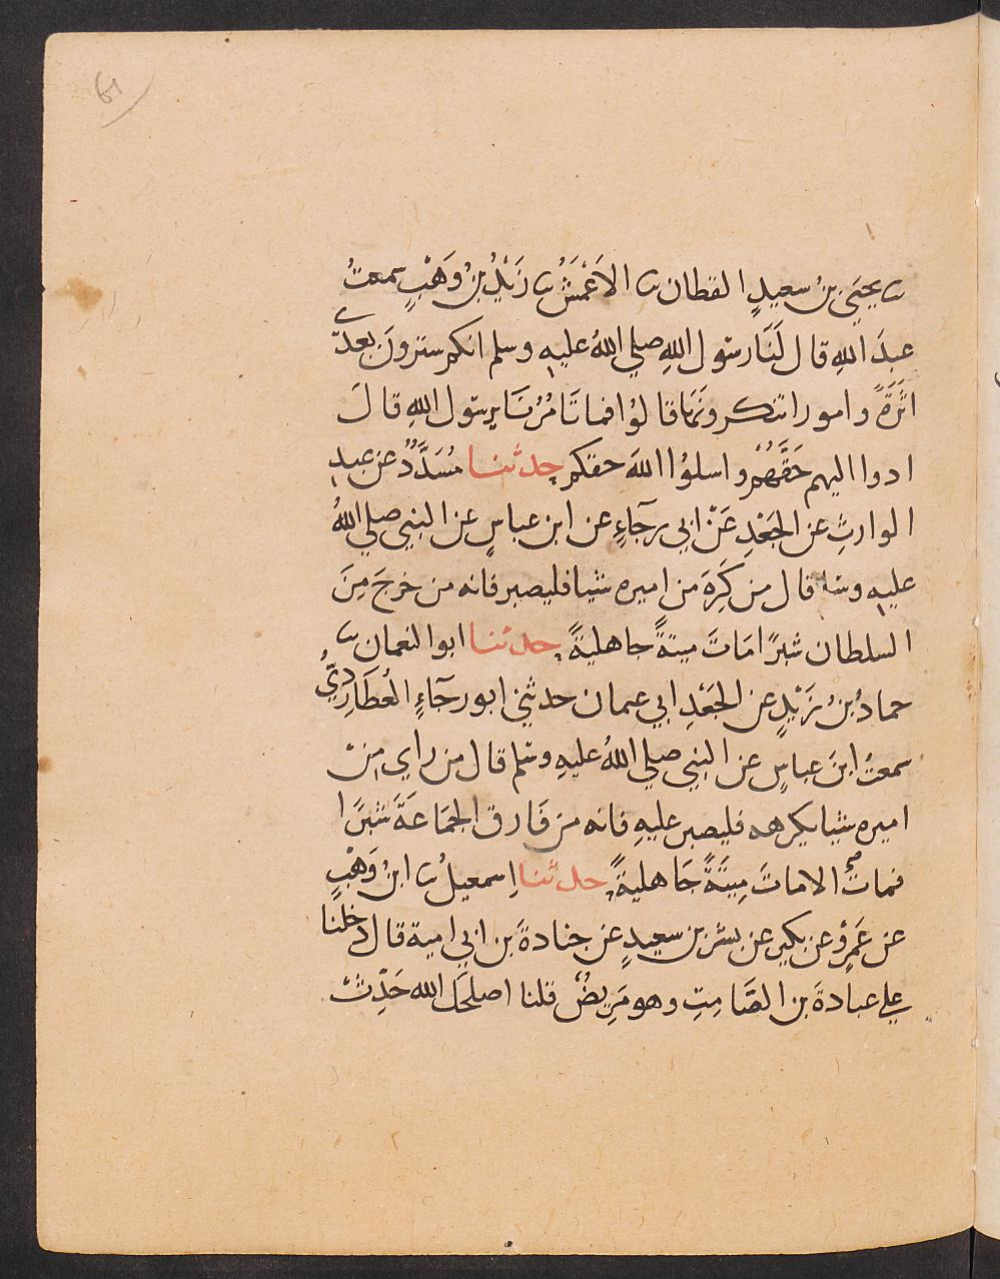 ثنا يحيَى بنُ سعيدٍ القطان ثنا الاَعْمَشُ ثنا زَيْدُ بنُ وَهْبٍ سمعتُ
عبدَ اللهِ قال لَنَا رسول اللهِ صلي اللهُ عليهِ وسلم انكم سترونَ بعدي
اثَرَةً وامورا تنكرونَهَا قالوُا فما تَامُرُنَا يرسول اللهِ قالَ
ادوا اليهم حَقَّهُم واسلوُا اللهَ حقكم حدثنا مُسَدَّدٌ عن عبدِ
الوارثِ عن الجَعْدِ عَنْ ابي رجآءٍ عن ابن عباسٍ عن النبي صلي اللهُ
عليهِ وسلم قال من كَرِهَ من اميره شيا فليصبر فانه من خرجَ مِنَ
السلطان شبرًا مَاتَ ميتةً جاهليةً حدثنا ابوا النعمان ثنا
حمادُ بنُ زَيْدٍ عن الجَعْدِ ابي عثمان حدثني ابو رجآءٍ العُطَارِدِيُّ
سمعتُ ابنَ عباسٍ عن النبي صلي اللهُ عليهِ وسلم قال من راي مِنْ
اميره شيا يكرهه فليصبر عليهِ فانه من فَارق الجَمَاعَةَ شبرًا
فمات الا ماتَ مِيتَةً جَاهليةً حدثنا اِسمعيلُ ثنا ابنُ وَهْبٍ
عن عَمرٍو عن بكير عن بسر بن سعيدٍ عن جنادةَ بن ابي امية قال دخلنا
علي عبادةَ بن الصَّامِتِ وهو مَرِيضٌ قلنا اصلحك الله حَدِّثْ
61